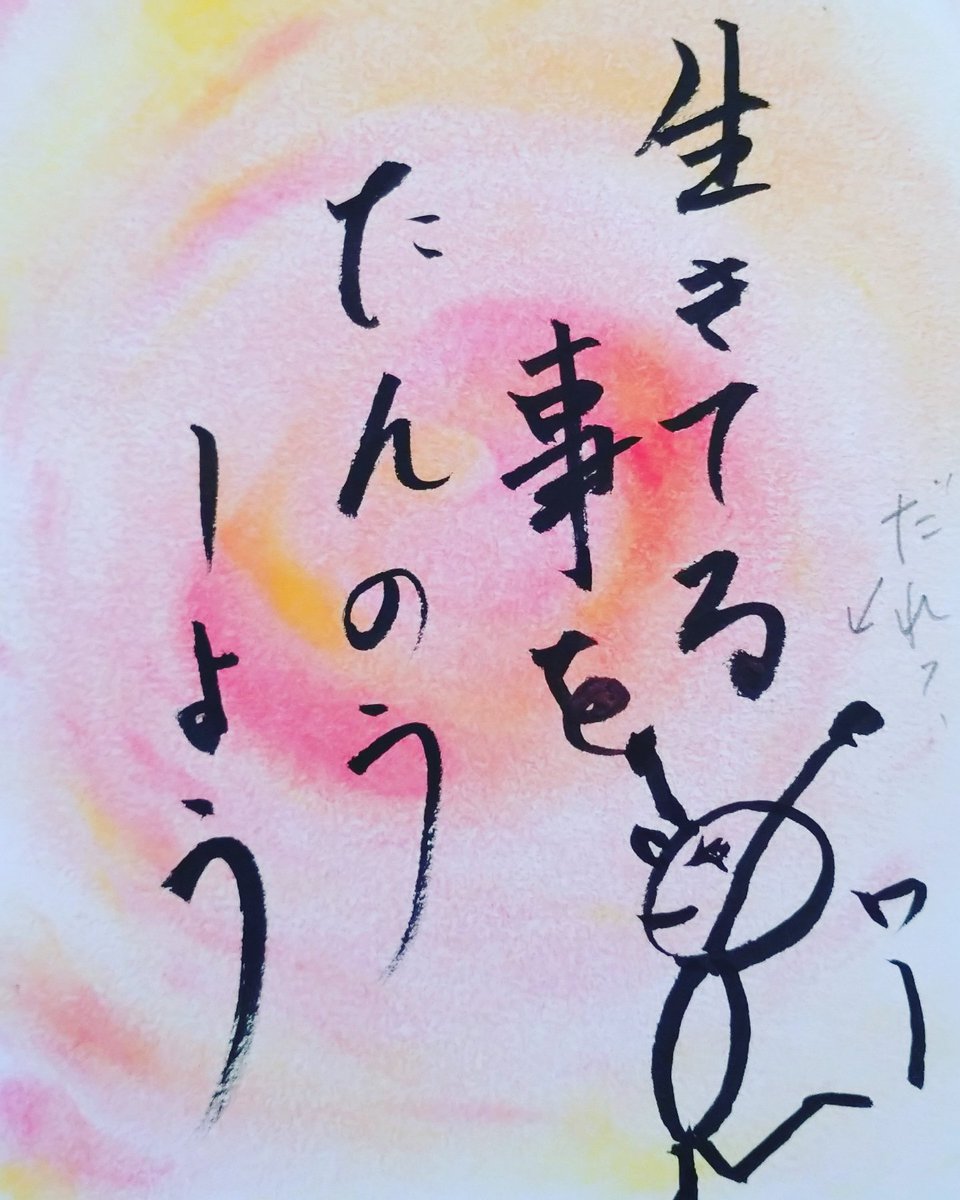 生きてる
事を
たんのう
しよう
だれ?
ワー